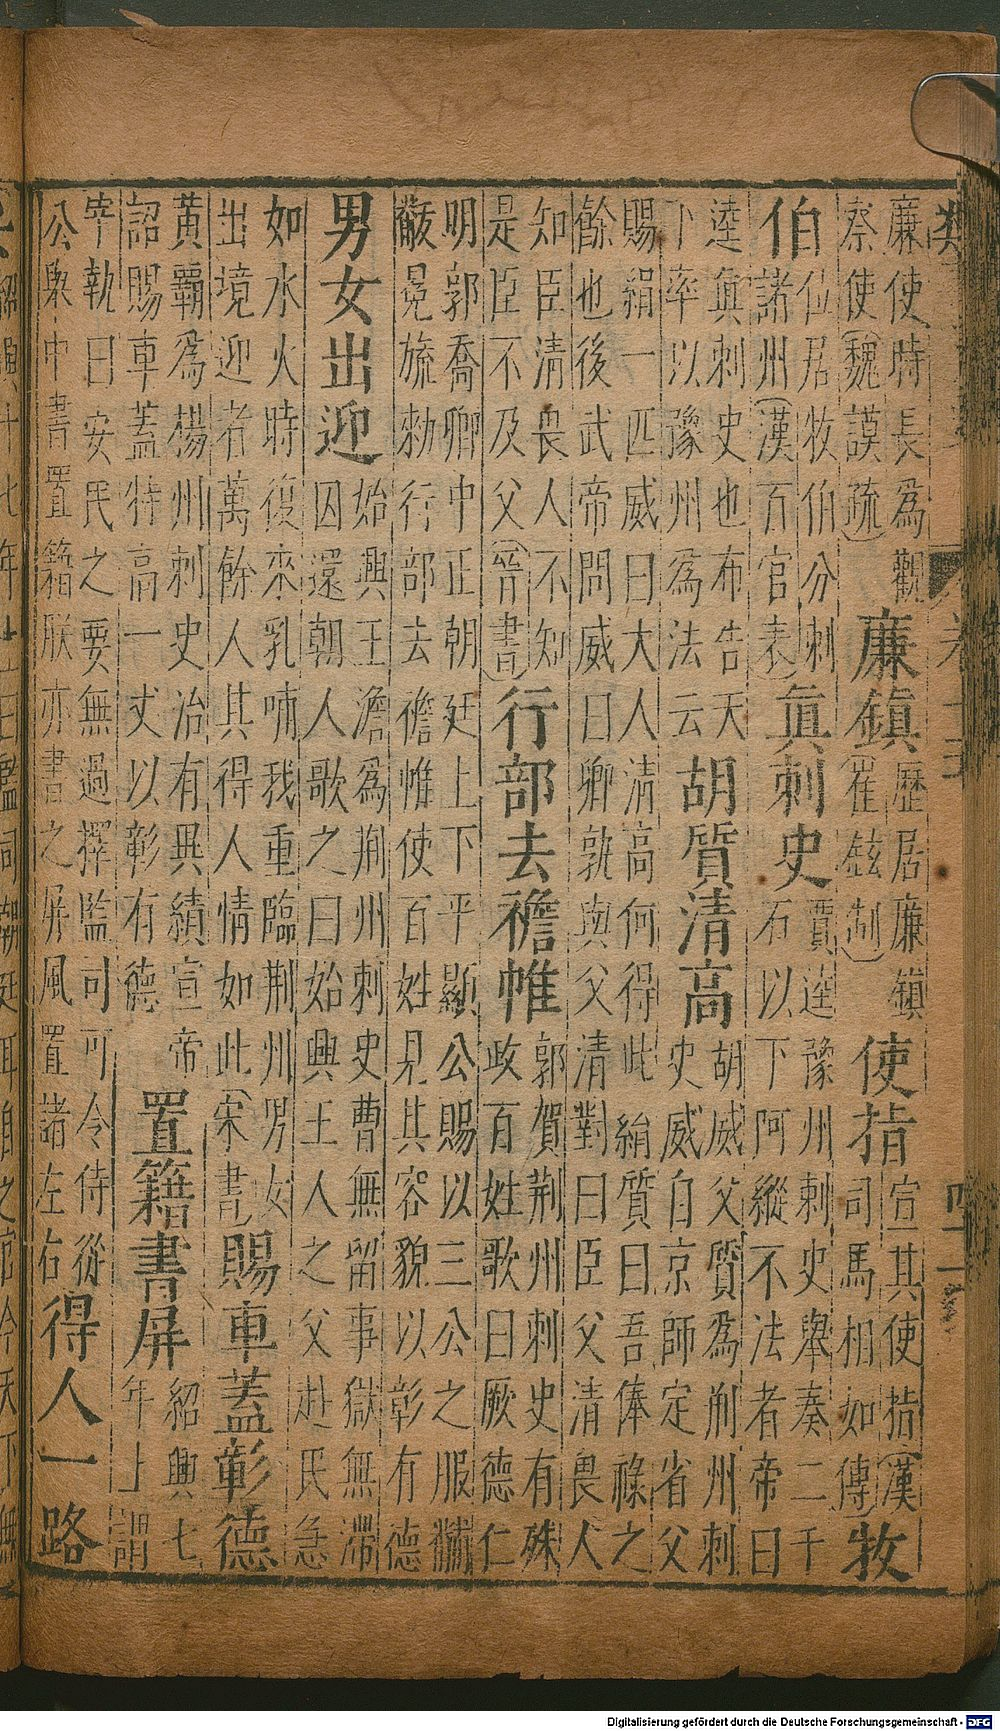 廉使時長爲觀
察使(魏謨疏)
廉鎮
歷居廉鎮
(崔鉉制)
使指
宣其使指(漢
司馬相如傳)
牧
伯
位居牧伯分刺
諸州(漢百官表)
眞刺史
賈逵豫州刺史舉奏二千
石以下阿縱不法者帝曰
逵眞刺史也布告天
下率以豫州爲法云
胡質清高
胡威父質爲荆州刺
史威自京師定省父
賜絹一匹威曰大人清高何得此絹質曰吾俸祿之
餘也後武帝問威曰卿孰與父清對曰臣父清畏人
知臣清畏人不知
是臣不及父(晉書)
行部去襜帷
郭賀荆州刺史有殊
政百姓歌曰厥德仁
明郭喬卿中正朝廷上下平顯公賜以三公之服黼
黻冕旒勑行部去襜帷使百姓見其容貌以彰有德
男女出迎
始興王澹爲荆州刺史曹無留事獄無滯
囚還朝人歌之曰始興王人之父赴民急
如水火時復來乳哺我重臨荆州男女
出境迎者萬餘人其得人情如此(宋書)
賜車蓋彰德
黄霸爲楊州刺史治有異績宣帝
詔賜車蓋特高一丈以彰有德
置籍書屏
紹興七
年上謂
宰執曰安民之要無過擇監司可令侍從
公舉中書置籍朕亦書之屏風置諸左右
得人一路
Digitalisierung gefördert durch die Deutsche Forschungsgemeinschaft - DFG